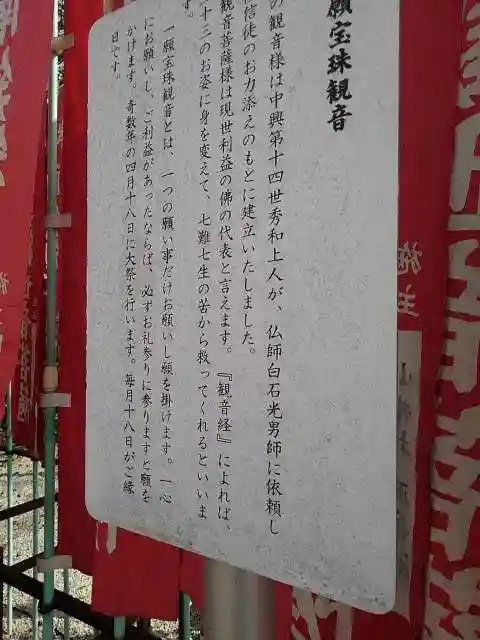 願宝珠観音
の観音様は中興第十四世秀和上人が、仏師白石光男師に依頼し
信徒のお力添えのもとに建立いたしました。
観音菩薩様は現世利益の佛の代表と言えます。『観音経』によれば、
三十三のお姿に身を変えて、七難七生の苦から救ってくれるといいま
す。
一願宝珠観音とは、一つの願い事だけお願いし願を掛けます。一心
にお願いし、ご利益があったならば、必ずお礼参りに参りますと願を
かけます。奇数年の四月十八日に大祭を行います。毎月十八日がご縁
日です。
施主